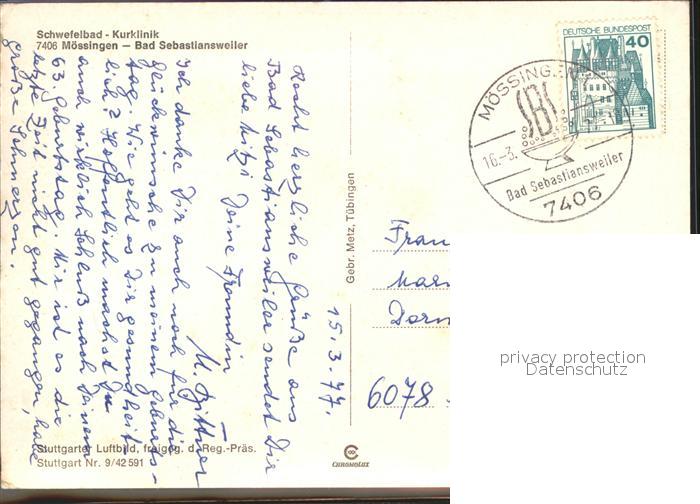 Schwefelbad - Kurklinik
7406 Mössingen – Bad Sebastiansweiler
DEUTSCHE BUNDESPOST
40
MÖSSINGEN
SBS
16.-3.
Bad Sebastiansweiler
7406
15.3.77.
Recht herzliche Grüße aus
Bad Sebastiansweiler sendet Dir
liebe Mitzi Deine Freundin
M. Bittner
Ich danke Dir auch noch für die
Glückwünsche zu meinem Geburts-
tag. Wie geht es Dir gesundheit-
lich? Hoffentlich machst Du
auch wirklich Schluß nach Deinem
63 Geburtstag. Mir ist es die
letzte Zeit nicht gut gegangen, habe
große Schmerzen.
Gebr. Metz, Tübingen
Frau
Mar
Dorn
6078
privacy protection
Datenschutz
Stuttgarter Luftbild, freigeg. d. Reg.-Präs.
Stuttgart Nr. 9/42 591
CHROMOLUX